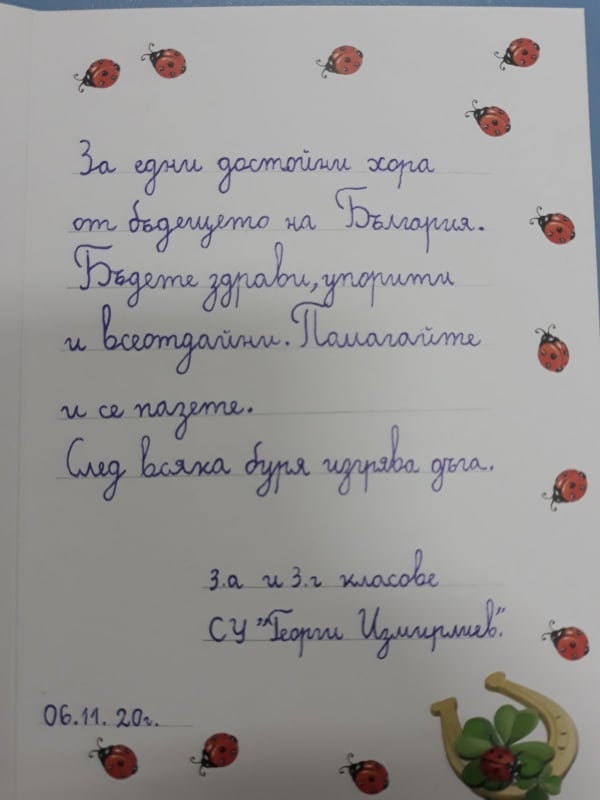 За едни достойни хора
от бъдещето на България.
Бъдете здрави, упорити
и всеотдайни. Помагайте
и се пазете.
След всяка буря изгрява дъга.
3.а и 3.г класове
СУ "Георги Измирлиев".
06.11.20г.